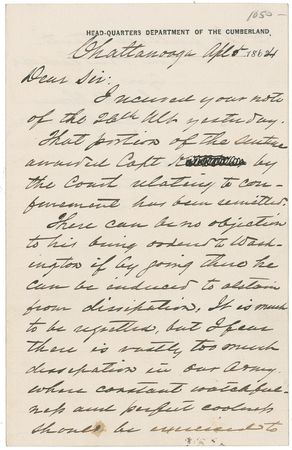 1050 –
HEAD-QUARTERS DEPARTMENT OF THE CUMBERLAND,
Chattanooga Apl 5 1864
Dear Sir:
I received your note
of the 26th Ult yesterday.
That portion of the sentence
awarded Capt by
the Court relating to con-
finement has been remitted.
There can be no objection
to his being ordered to Wash-
ington if by going there he
can be induced to abstain
from dissipation. It is much
to be regretted, but I fear
there is vastly too much
dissipation in our Army
where constant watchful-
ness and perfect coolness
should be exercised to